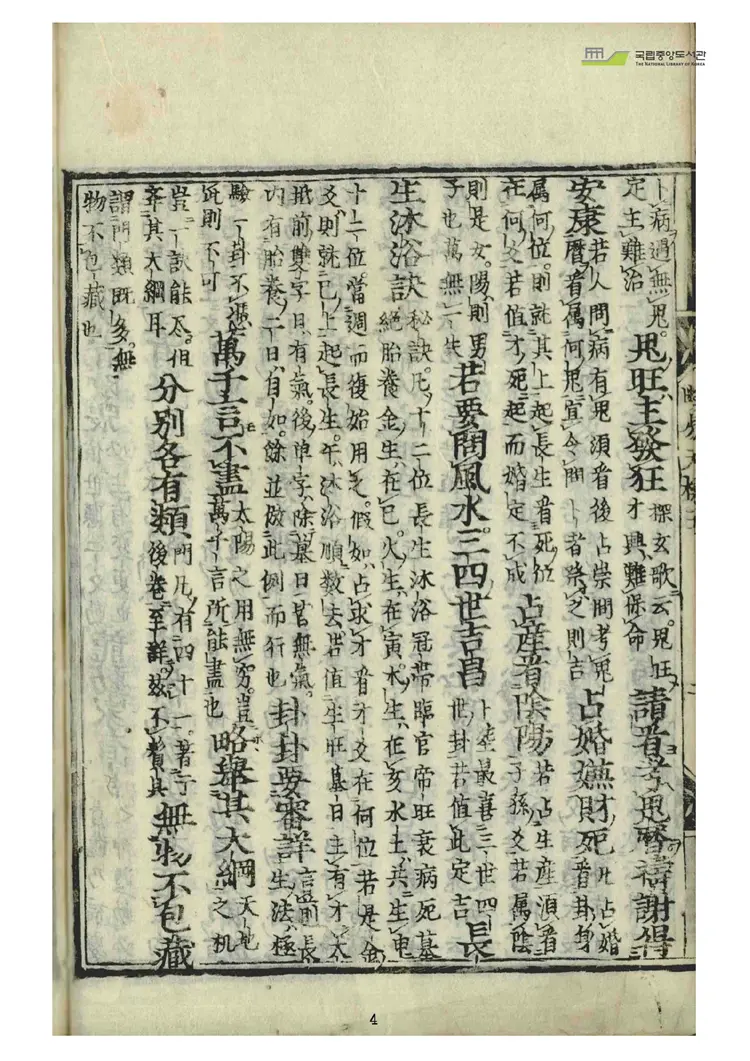 卜病遇無鬼
定主難治
鬼旺主發狂
探玄歌云鬼旺
才興難保命
請看李鬼曆禱謝得
安康
若人問病有鬼須看後占祟問考鬼
曆看属何鬼宜令問卜者祭之則吉
占婚嫌財死
凡占婚
看卦身
属何位則就其上起長生看死位
在何爻若值才死起而婚定不成
占産看陰陽
若占生産須看
子孫爻若属陰
則是女陽則男
子也萬無一失
若要問風水三四世吉昌
卜塋最喜三世四
世卦若值此定吉
長
生沐浴訣
秘訣凡十二位長生沐浴冠帶臨官帝旺衰病死墓
絕胎養金生在巳火生在寅木生在亥水土共生申
十二位當週而復始用之假如占求才看才爻在何位若是金
爻則就巳上起長生午沐浴順數去若值生旺墓日主有才太
抵前雙字日有氣後單字除墓日皆無氣
内有胎養二日自如餘並倣此例而行也
卦卦要審詳
言前長
生法極
驗一卦不憑
此則不可
萬千言不盡
太陽之用無窮豈
萬千言所能盡也
略舉其大綱
天地
之机
豈一訣能尽但
舉其大綱耳
分別各有類
門凡有四十一著于
後卷至詳玆不贅具
無物不包藏
謂門類既多無
物不包藏也
국립중앙도서관
THE NATIONAL LIBRARY OF KOREA
4